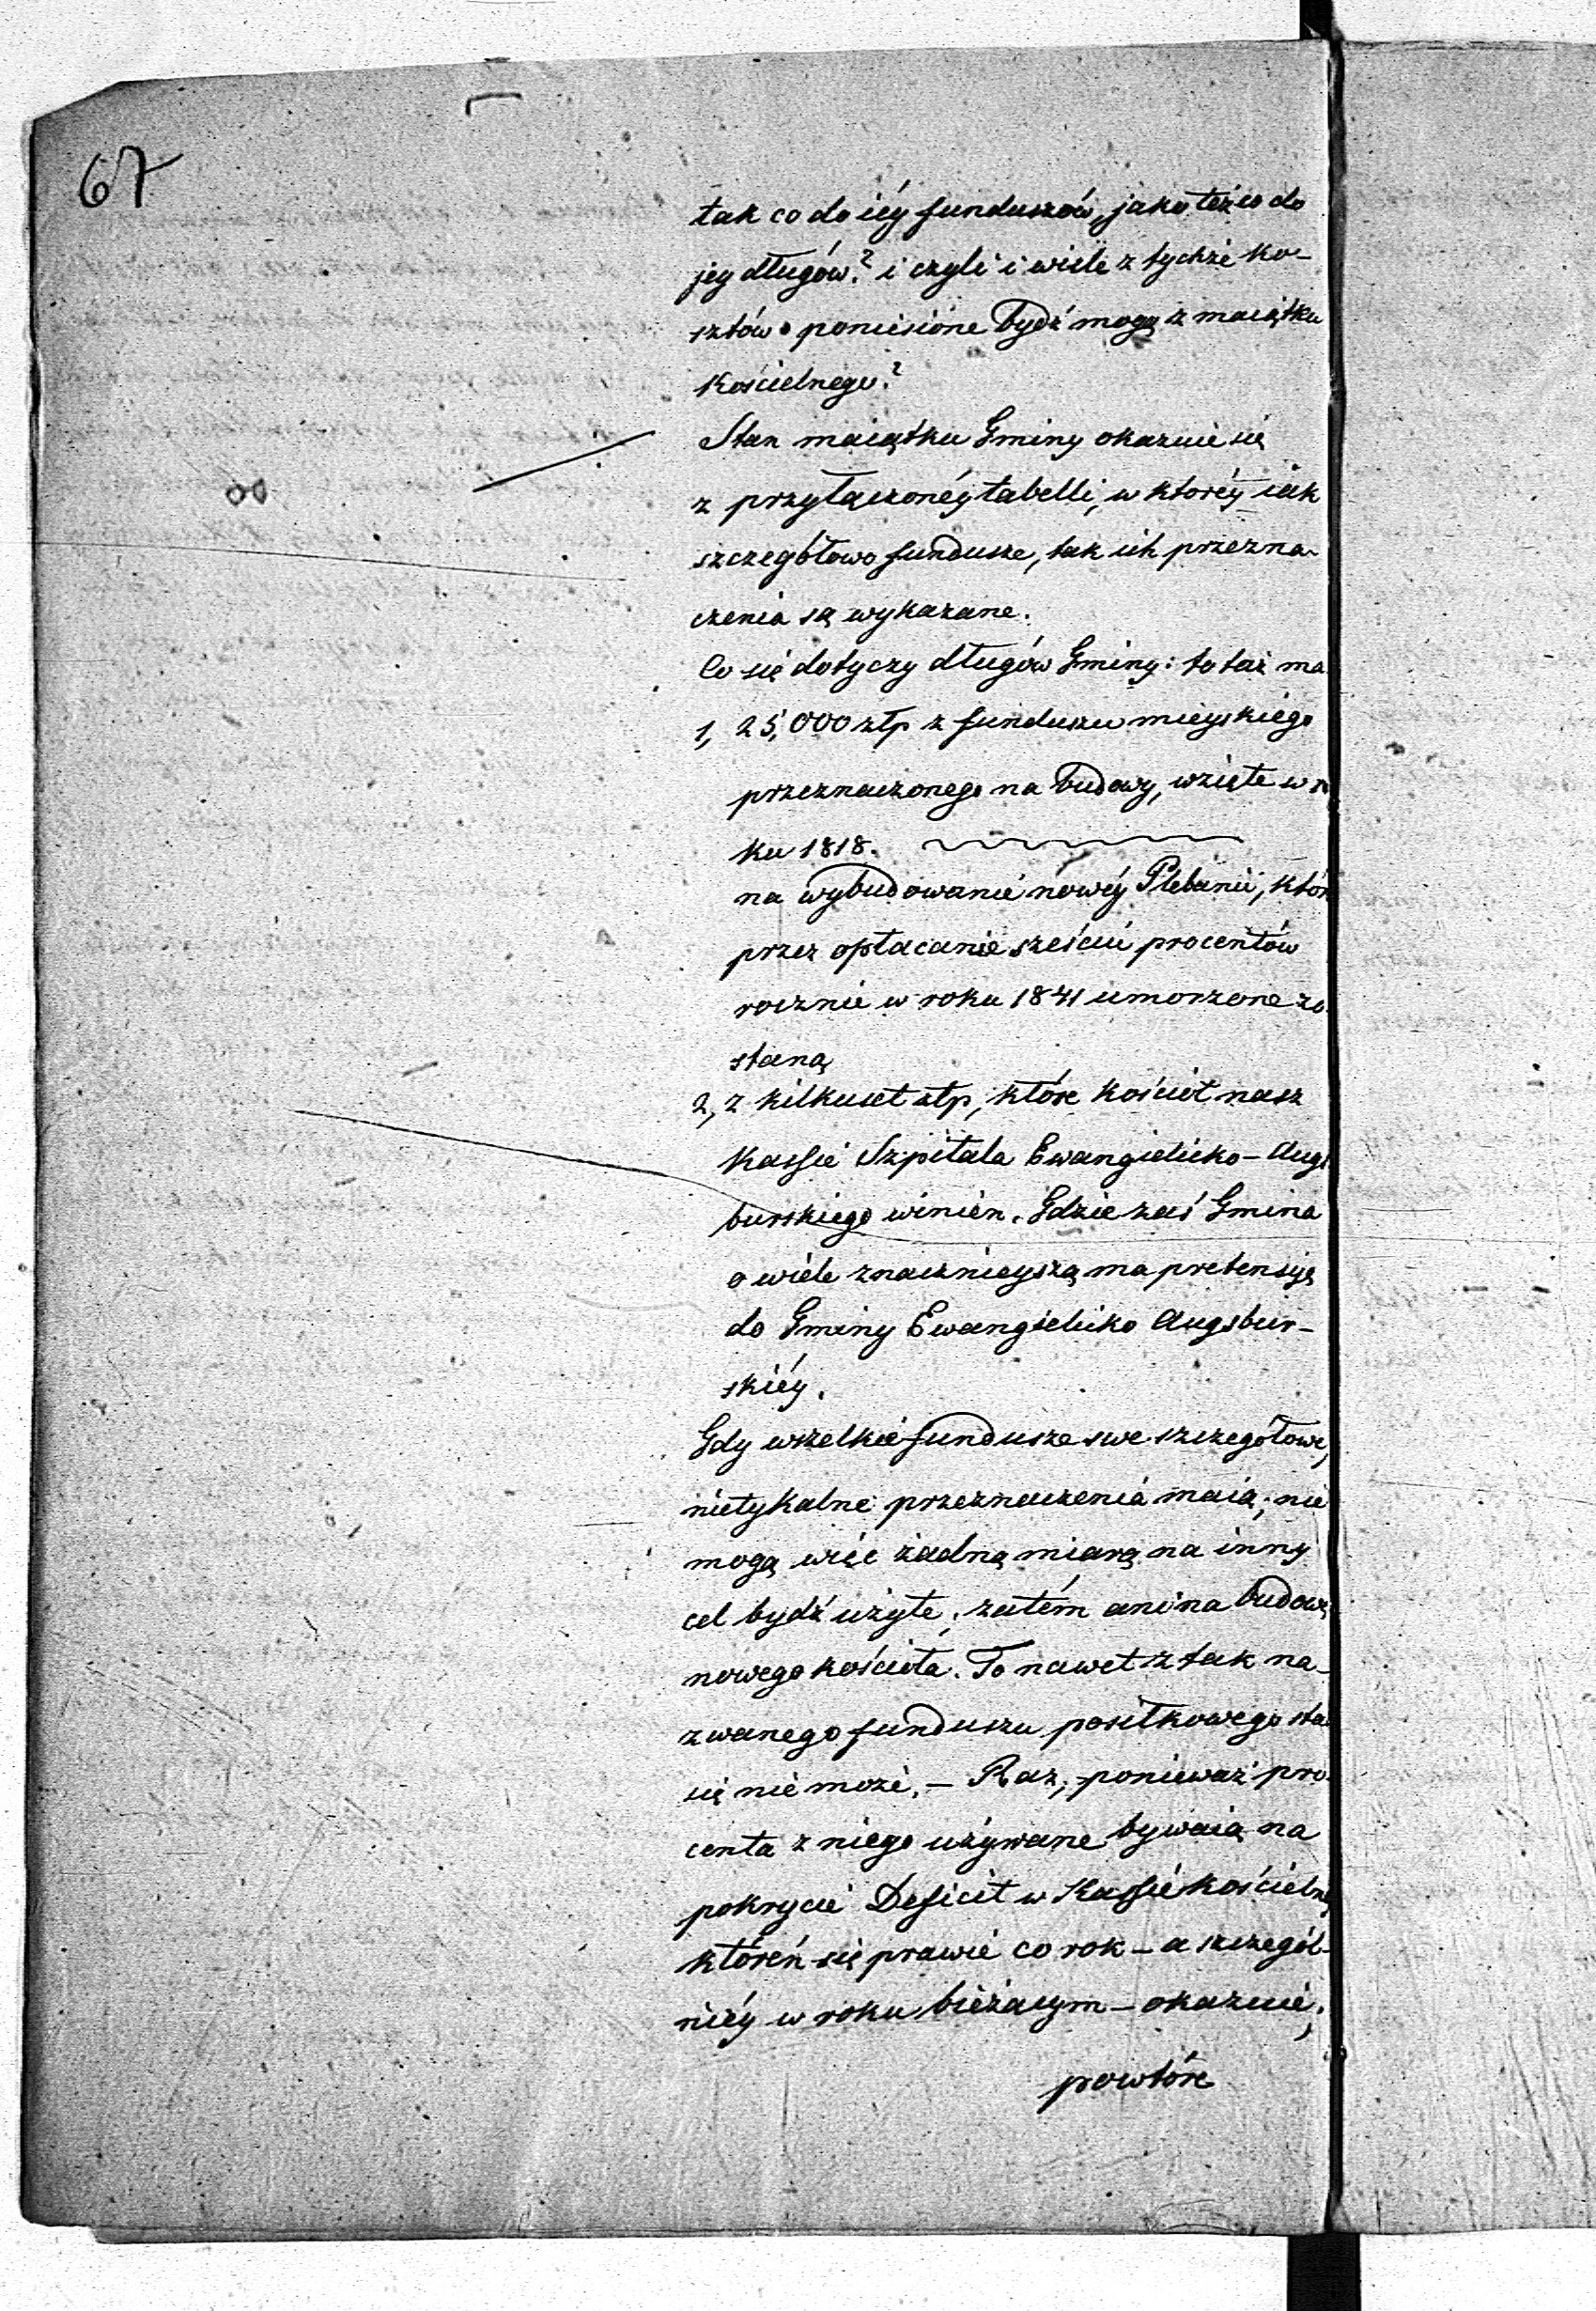 67
tak co do iéy funduszów, jako też co do
jey długów? i czyli i wiele z tychże ko-
sztów poniesione bydź mogą z maiątku
Kościelnego?
Stan maiątku Gminy okazuie się
z przyłączonéy tabelli, w któréy iak
szczegółowo fundusze, tak ich przezna-
czenia są wykazane.
Co się dotyczy długów Gminy: to taż ma
1, 25,000 złp z funduszu mieyskiego
przeznaczonego na budowy, wzięte w ro
ku 1818.
na wybudowanie nowéy Plebanii, któr
przez opłacanie sześciu procentów
rocznie w roku 1841 umorzone zo-
staną
2, z kilkuset złp, które kościół nasz
Kassie Szpitala Ewangielicko-Augs
burskiego winien. Gdzie zaś Gmina
o wiele znacznieyszą ma pretensyą
do Gminy Ewangielicko Augsbur-
skiéy.
Gdy wszelkie fundusze swe szczegółowe,
nietykalne przeznaczenia maią; nie
mogą więc żadną miarą na inny
cel bydź użyte; zatém ani na budowę
nowego kościoła. To nawet z tak na-
zwanego funduszu posiłkowego sta
się nie może. - Raz, ponieważ pro-
centa z niego używane bywaią na
pokrycie Deficit w Kassie Kościelnéy
któren się prawie co rok - a szczegól-
niéy w roku bieżącym - okazuie;
powtóre